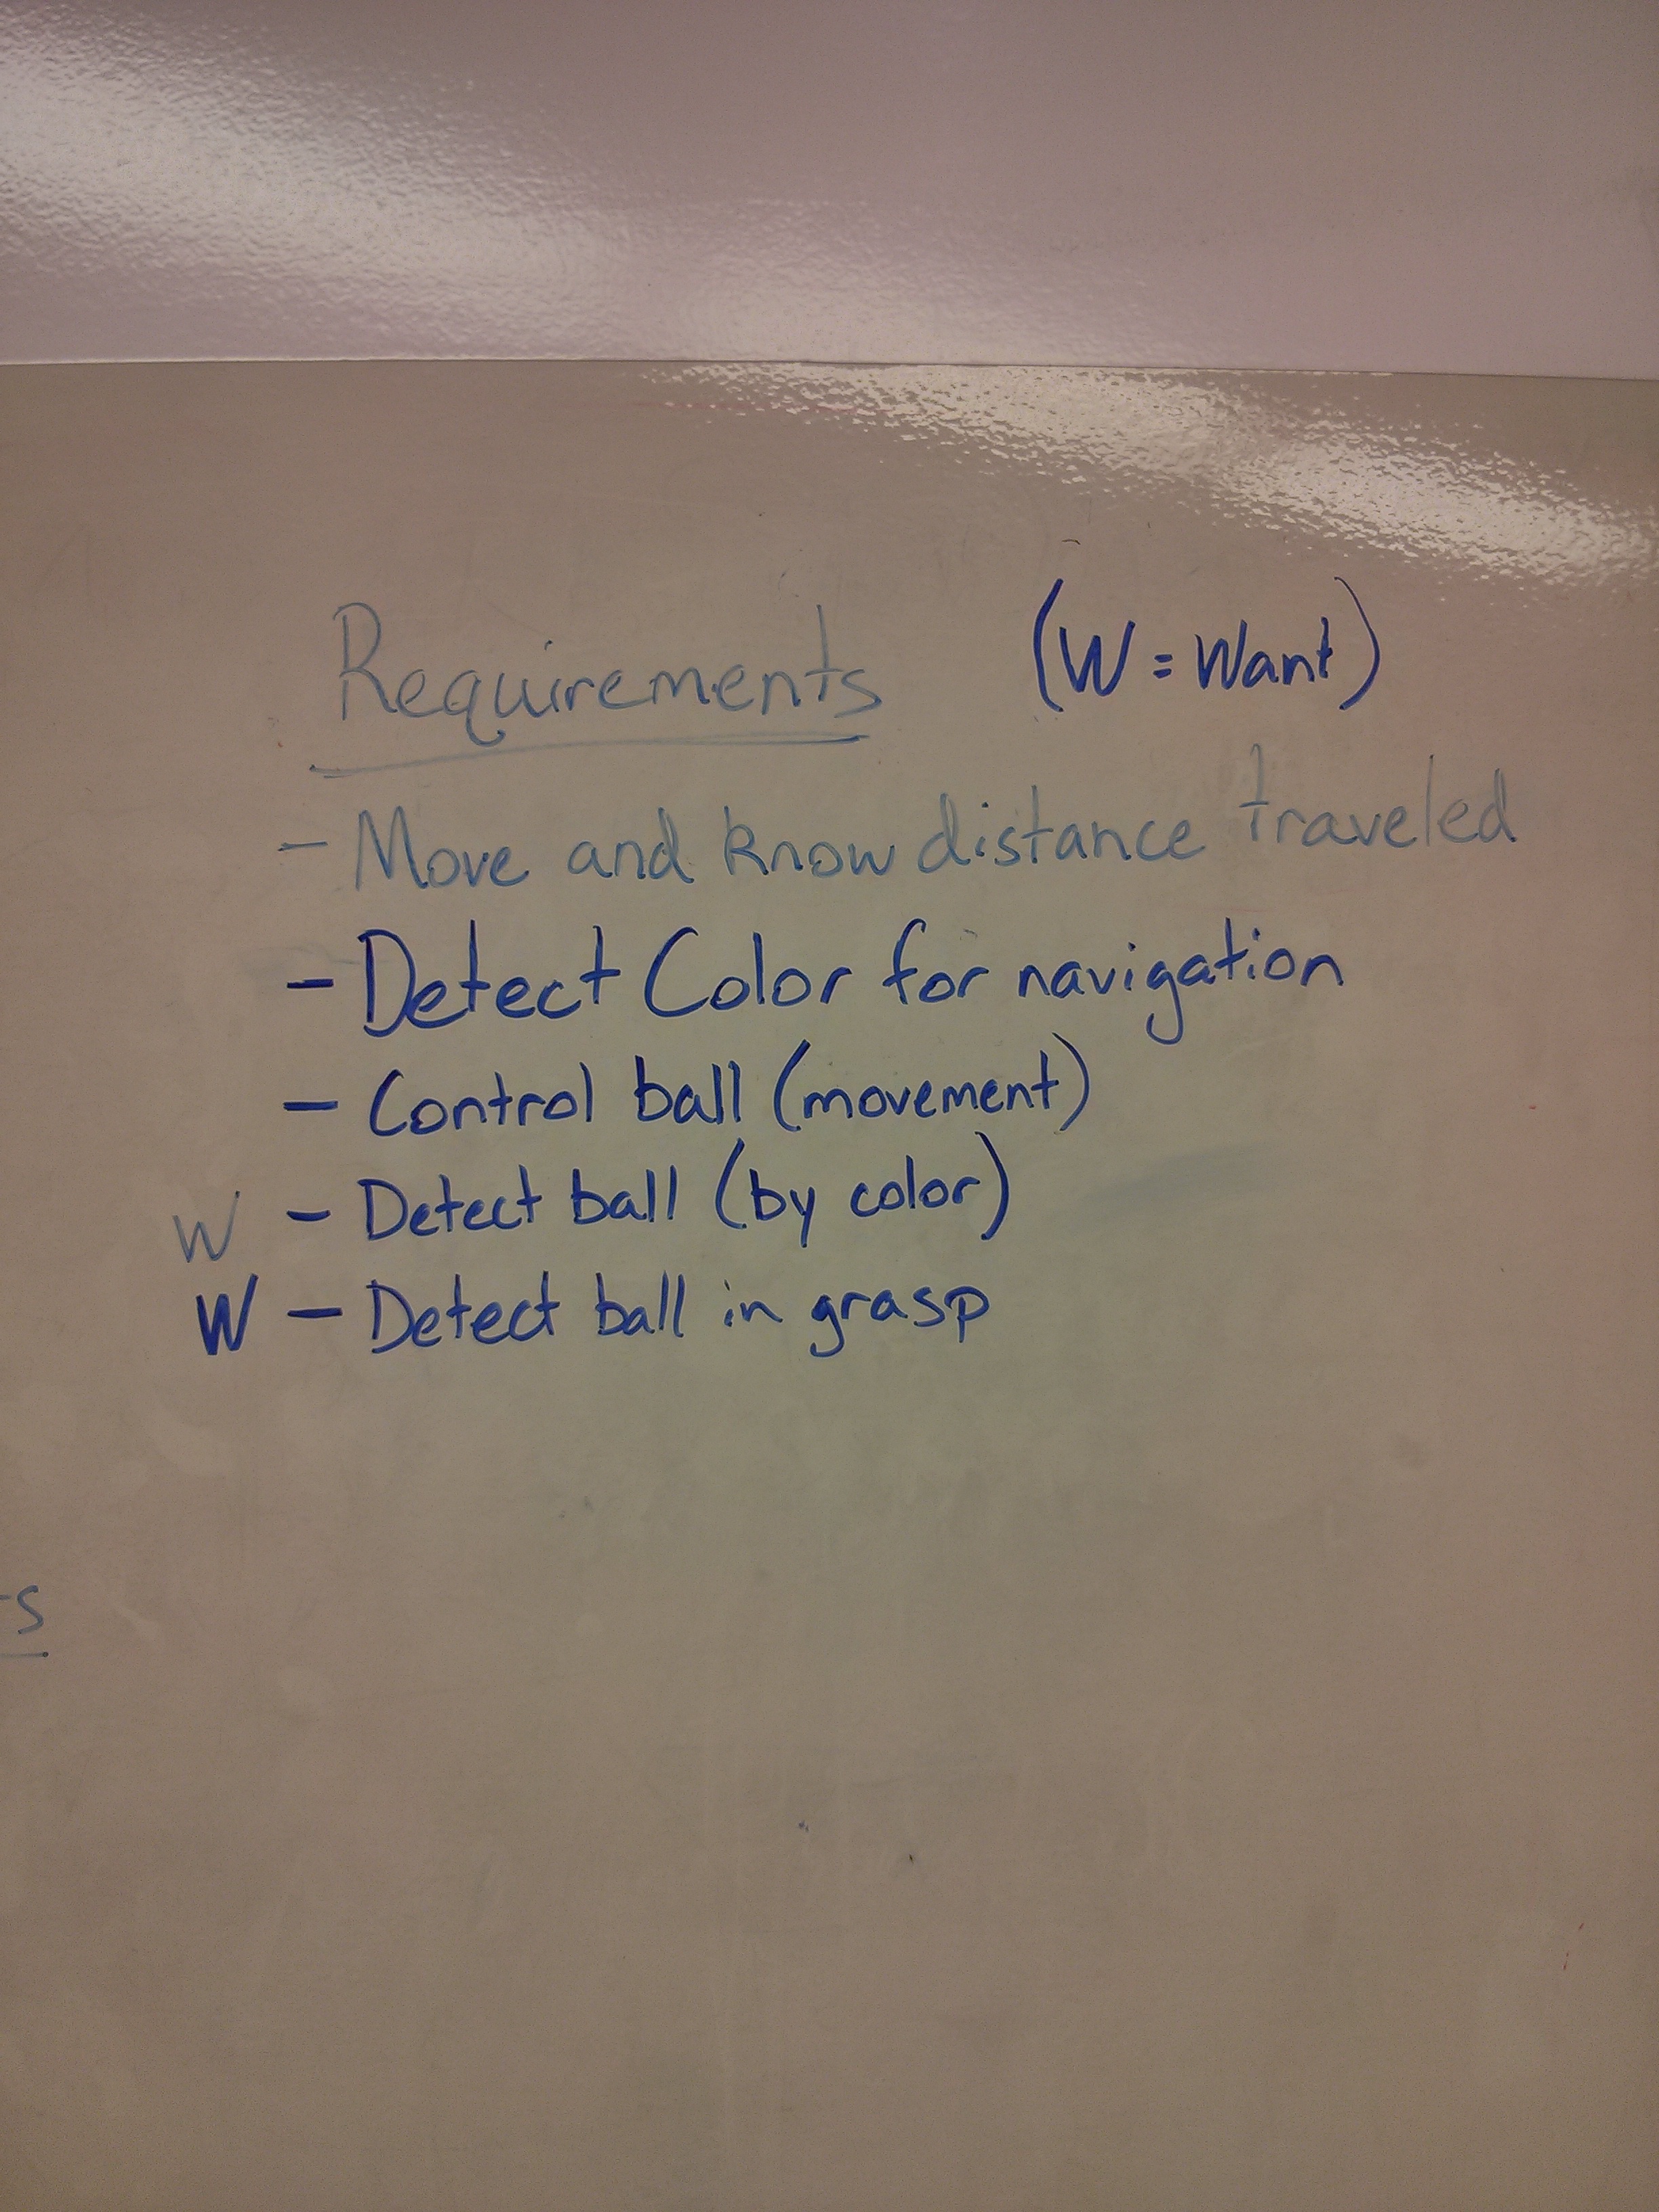 Requirements (W = Want)
- Move and know distance traveled
- Detect Color for navigation
- Control ball (movement)
W - Detect ball (by color)
W - Detect ball in grasp